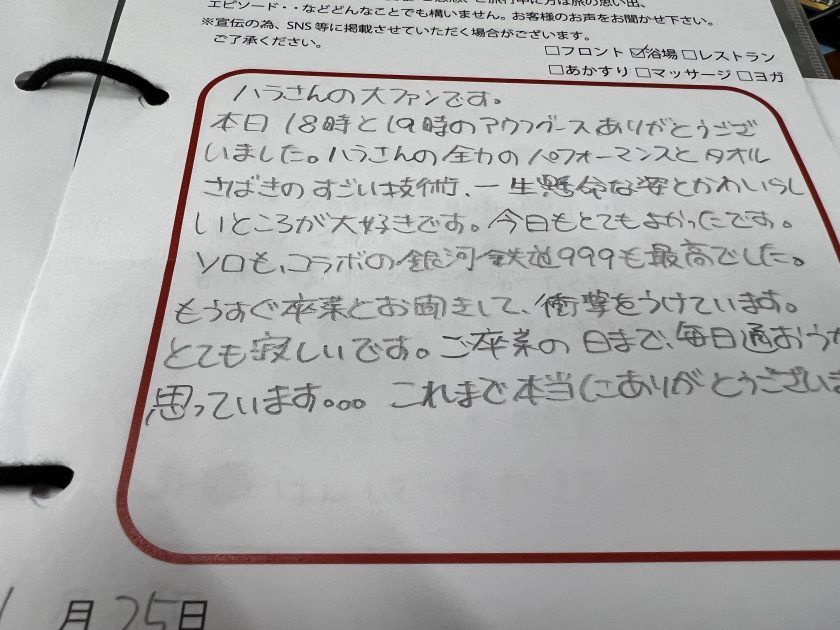 エピソード・・などどんなことでも構いません。お客様のお声をお聞かせ下さい。
※宣伝の為、SNS 等に掲載させていただく場合がございます。
ご了承ください。
□フロント ☑浴場 □レストラン
□あかすり □マッサージ □ヨガ
ハラさんの大ファンです。
本日 18時と19時のアウフグース ありがとうござ
いました。ハラさんの全力の パフォーマンスと タオル
さばきの すごい技術、一生懸命な姿とかわいらし
いところが大好きです。今日もとてもよかったです。
ソロも、コラボの銀河鉄道999も最高でした。
もうすぐ卒業とお聞きして、衝撃をうけています。
とても寂しいです。ご卒業の日まで、毎日通おうか
思っています。。。 これまで本当にありがとうございま
月25日